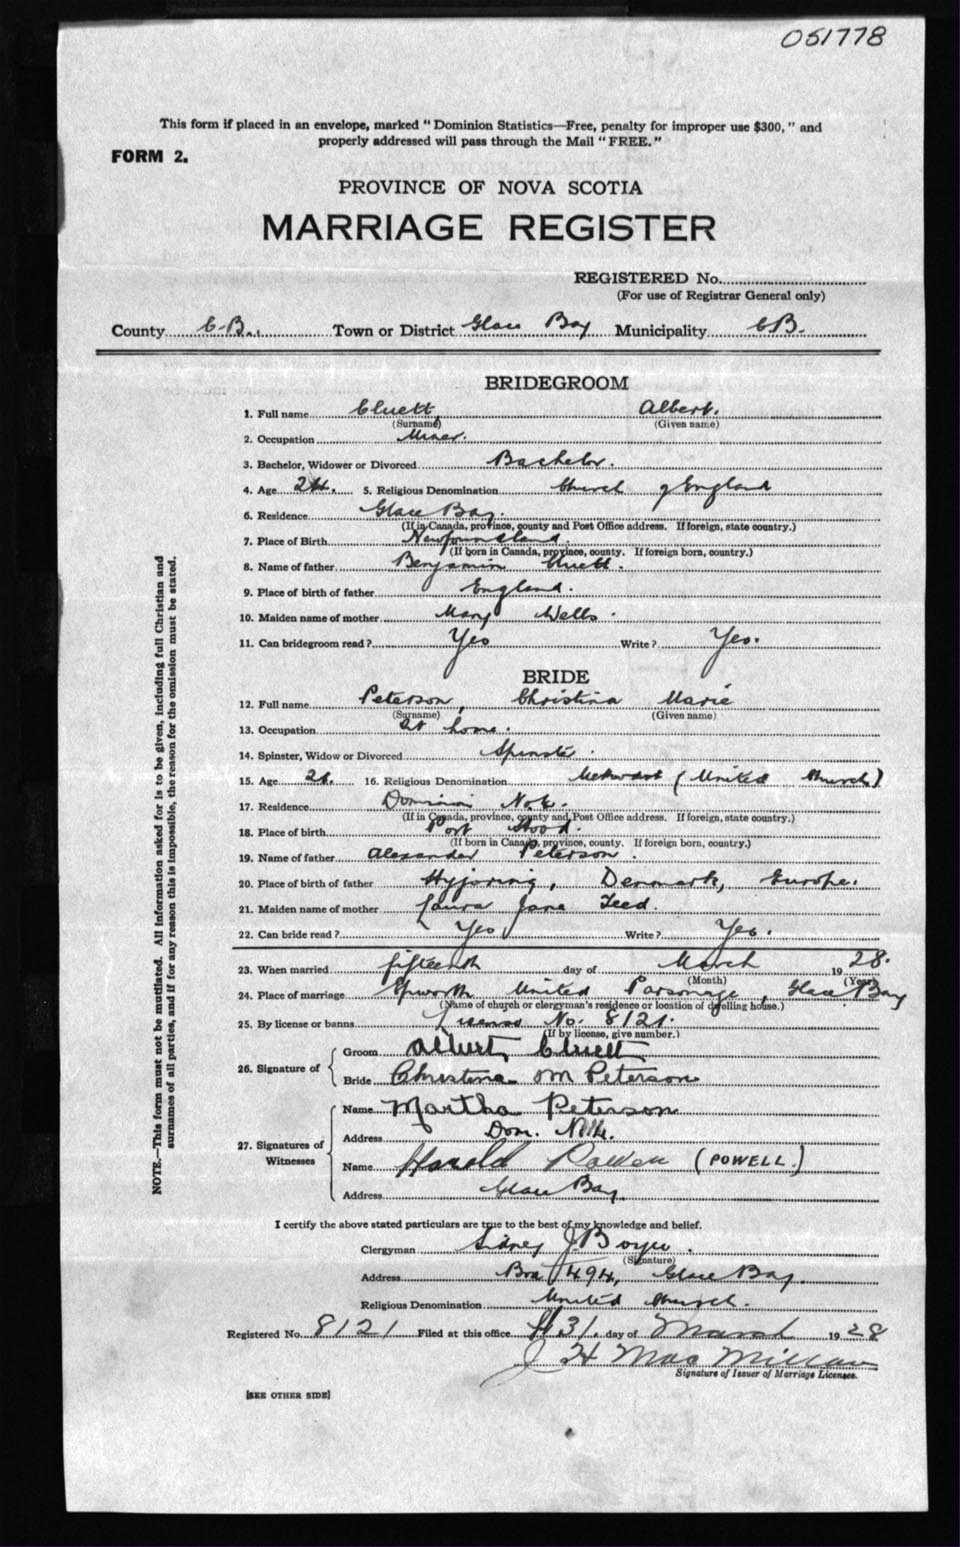 051778
This form if placed in an envelope, marked "Dominion Statistics—Free, penalty for improper use $300," and
properly addressed will pass through the Mail "FREE."
FORM 2.
PROVINCE OF NOVA SCOTIA
MARRIAGE REGISTER
REGISTERED No.
(For use of Registrar General only)
County C.B. Town or District Glace Bay Municipality C.B.
BRIDEGROOM
1. Full name Cluett, Albert.
(Surname) (Given name)
2. Occupation Miner.
3. Bachelor, Widower or Divorced Bachelor.
4. Age 24. 5. Religious Denomination Church of England
6. Residence Glace Bay.
(If in Canada, province, county and Post Office address. If foreign, state country.)
7. Place of Birth Newfoundland.
(If born in Canada, province, county. If foreign born, country.)
8. Name of father Benjamin Cluett.
9. Place of birth of father England.
10. Maiden name of mother Mary Wells.
11. Can bridegroom read? Yes Write? Yes.
BRIDE
12. Full name Peterson, Christina Marie
(Surname) (Given name)
13. Occupation at home.
14. Spinster, Widow or Divorced Spinster.
15. Age 21. 16. Religious Denomination Methodist (United Church)
17. Residence Dominion No. 6.
(If in Canada, province, county and Post Office address. If foreign, state country.)
18. Place of birth Port Hood.
(If born in Canada, province, county. If foreign born, country.)
19. Name of father Alexander Peterson.
20. Place of birth of father Hyjoring, Denmark, Europe.
21. Maiden name of mother Laura Jane Teed.
22. Can bride read? Yes Write? Yes.
23. When married fifteenth day of March 1928.
(Month) (Year)
24. Place of marriage Epworth United Parsonage, Glace Bay
(Name of church or clergyman's residence or location of dwelling house.)
25. By license or banns License No. 8121.
(If by license, give number.)
26. Signature of
Groom Albert Cluett
Bride Christena M Peterson
27. Signatures of Witnesses
Name Martha Peterson
Address Dom. No. 6.
Name Harold Powell (POWELL.)
Address Glace Bay
I certify the above stated particulars are true to the best of my knowledge and belief.
Clergyman Sidney J Boyce.
(Signature)
Address Box 494, Glace Bay.
Religious Denomination United Church.
Registered No. 8121 Filed at this office 31. day of March 1928
J H MacMillan
Signature of Issuer of Marriage Licenses.
[SEE OTHER SIDE]
NOTE.—This form must not be mutilated. All information asked for is to be given, including full Christian and
surnames of all parties, and if for any reason this is impossible, the reason for the omission must be stated.